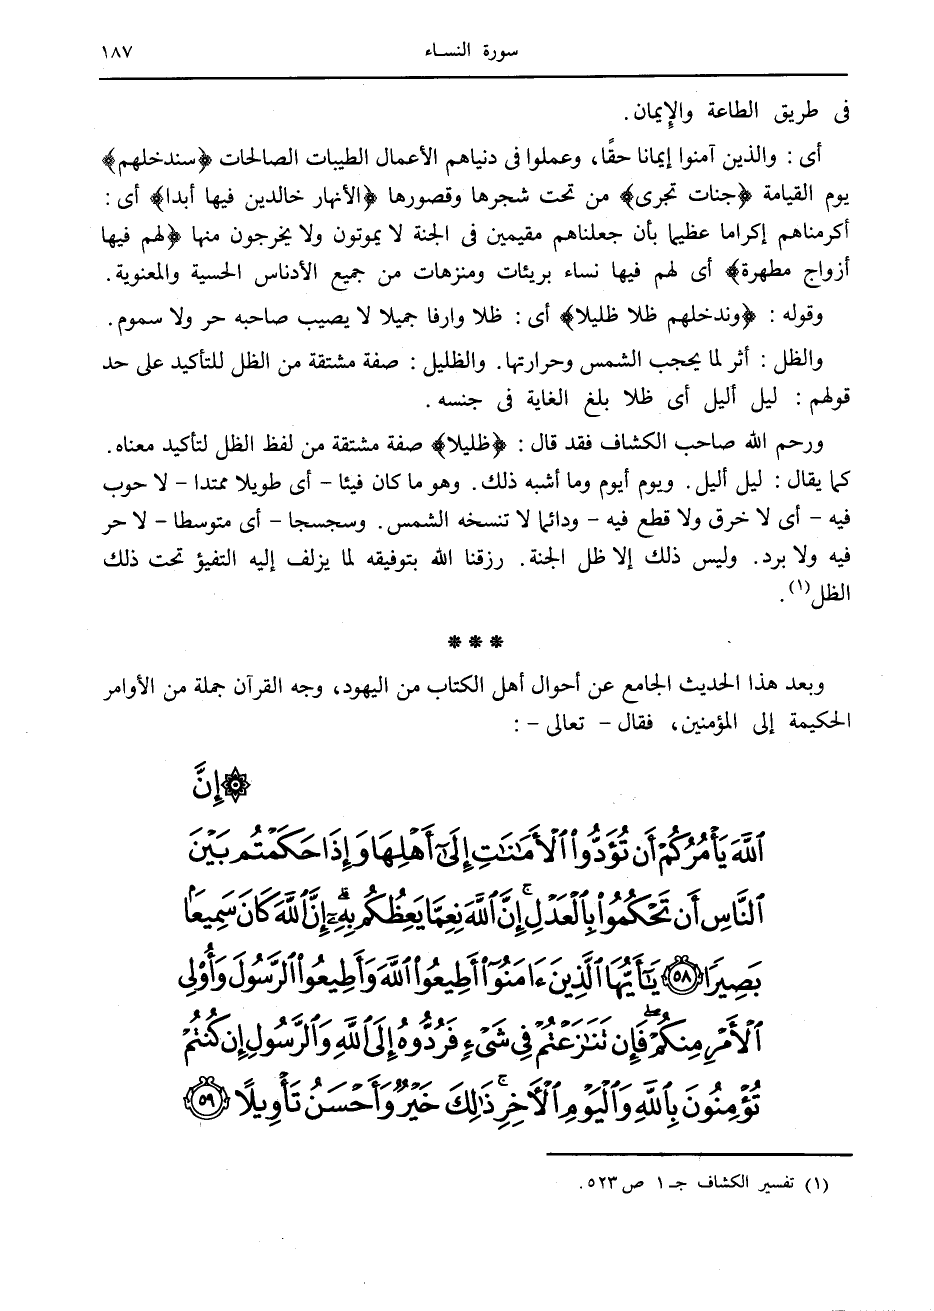 سورة النساء ١٨٧
فى طريق الطاعة والإيمان.
أى : والذين آمنوا إيمانا حقًا، وعملوا فى دنياهم الأعمال الطيبات الصالحات ﴿سندخلهم﴾
يوم القيامة ﴿جنات تجرى﴾ من تحت شجرها وقصورها ﴿الأنهار خالدين فيها أبدا﴾ أى :
أكرمناهم إكراما عظيما بأن جعلناهم مقيمين فى الجنة لا يموتون ولا يخرجون منها ﴿لهم فيها
أزواج مطهرة﴾ أى لهم فيها نساء بريئات ومنزهات من جميع الأدناس الحسية والمعنوية.
وقوله : ﴿وندخلهم ظلا ظليلا﴾ أى : ظلا وارفا جميلا لا يصيب صاحبه حر ولا سموم.
والظل : أثر لما يحجب الشمس وحرارتها. والظليل : صفة مشتقة من الظل للتأكيد على حد
قولهم : ليل أليل أى ظلا بلغ الغاية فى جنسه.
ورحم الله صاحب الكشاف فقد قال : ﴿ظليلا﴾ صفة مشتقة من لفظ الظل لتأكيد معناه.
كما يقال : ليل أليل. ويوم أيوم وما أشبه ذلك. وهو ما كان فينا - أى طويلا ممتدا - لا حوب
فيه - أى لا خرق ولا قطع فيه - ودائما لا تنسخه الشمس. وسجسجا - أى متوسطا - لا حر
فيه ولا برد. وليس ذلك إلا ظل الجنة. رزقنا الله بتوفيقه لما يزلف إليه التفيؤ تحت ذلك
الظل(١).
***
وبعد هذا الحديث الجامع عن أحوال أهل الكتاب من اليهود، وجه القرآن جملة من الأوامر
الحكيمة إلى المؤمنين، فقال - تعالى - :
۞ إِنَّ
ٱللَّهَ يَأْمُرُكُمْ أَن تُؤَدُّواْ ٱلْأَمَٰنَٰتِ إِلَىٰٓ أَهْلِهَا وَإِذَا حَكَمْتُم بَيْنَ
ٱلنَّاسِ أَن تَحْكُمُواْ بِٱلْعَدْلِ ۚ إِنَّ ٱللَّهَ نِعِمَّا يَعِظُكُم بِهِۦٓ ۗ إِنَّ ٱللَّهَ كَانَ سَمِيعًۢا
بَصِيرًا ۝٥٨ يَٰٓأَيُّهَا ٱلَّذِينَ ءَامَنُوٓاْ أَطِيعُواْ ٱللَّهَ وَأَطِيعُواْ ٱلرَّسُولَ وَأُوْلِى
ٱلْأَمْرِ مِنكُمْ ۖ فَإِن تَنَٰزَعْتُمْ فِى شَىْءٍ فَرُدُّوهُ إِلَى ٱللَّهِ وَٱلرَّسُولِ إِن كُنتُمْ
تُؤْمِنُونَ بِٱللَّهِ وَٱلْيَوْمِ ٱلْأَخِرِ ۚ ذَٰلِكَ خَيْرٌ وَأَحْسَنُ تَأْوِيلًا ۝٥٩
(١) تفسير الكشاف جـ ١ ص ٥٢٣.